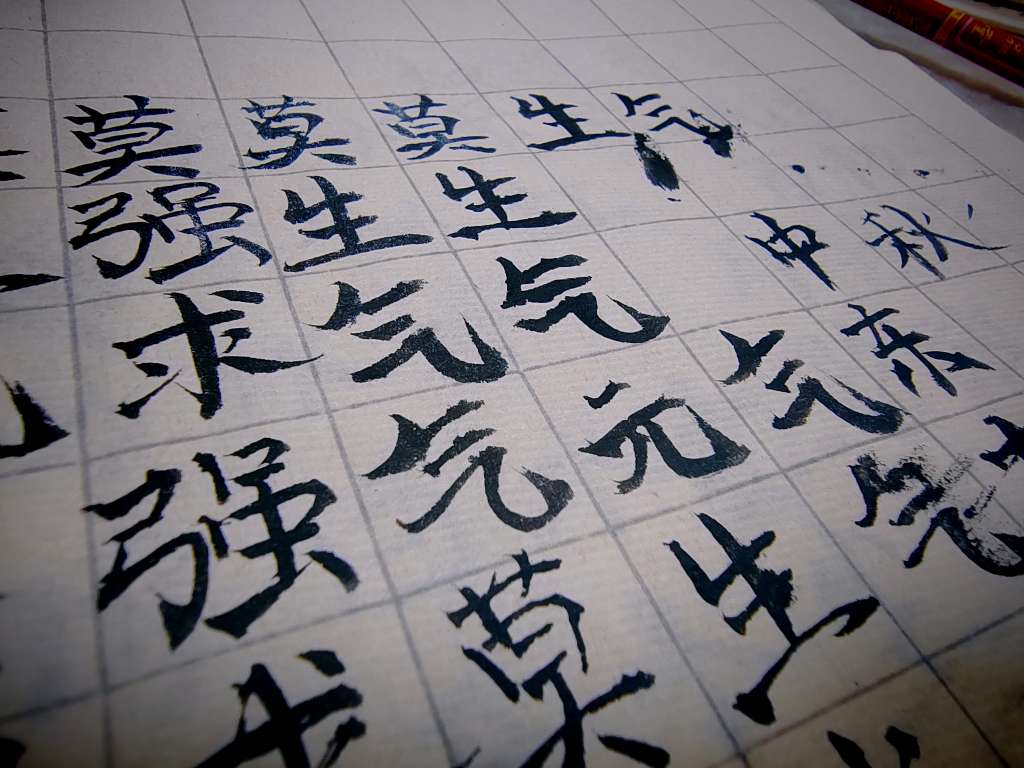 莫莫莫生气
强生生中秋
求气气气亲
强气元生气
求莫